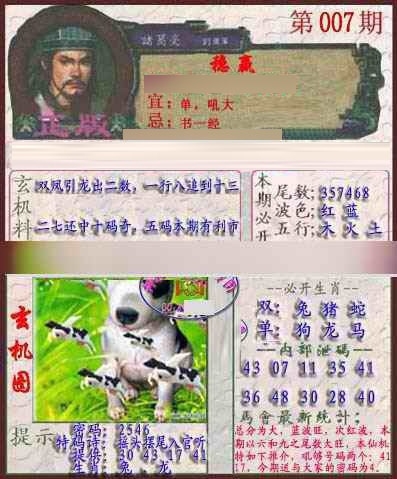 第007期
諸葛亮
稳赢
宜:单,吼大
忌:书一经
正版
玄机料
双凤引龙出二数,一行入追到十三
二七还中十码奇,五码本期有利市
本期必开
尾数:357468
波色:红 蓝
五行:木 火 土
玄机图
必开生肖
双:兔 猪 蛇
单:狗 龙 马
内部泄码
43 07 11 35 41
36 48 30 28 40
馬會最新统计:
总分为大,蓝波旺,次红波,本
期以六和九之尾数大旺,本仙机
特如下推介,吼够号码两个:41
17,今期送与大家的密码为4.
提示
密码:2546
特码诗:摇头摆尾入官听
提得:30 43 17 41
生肖:兔,龙